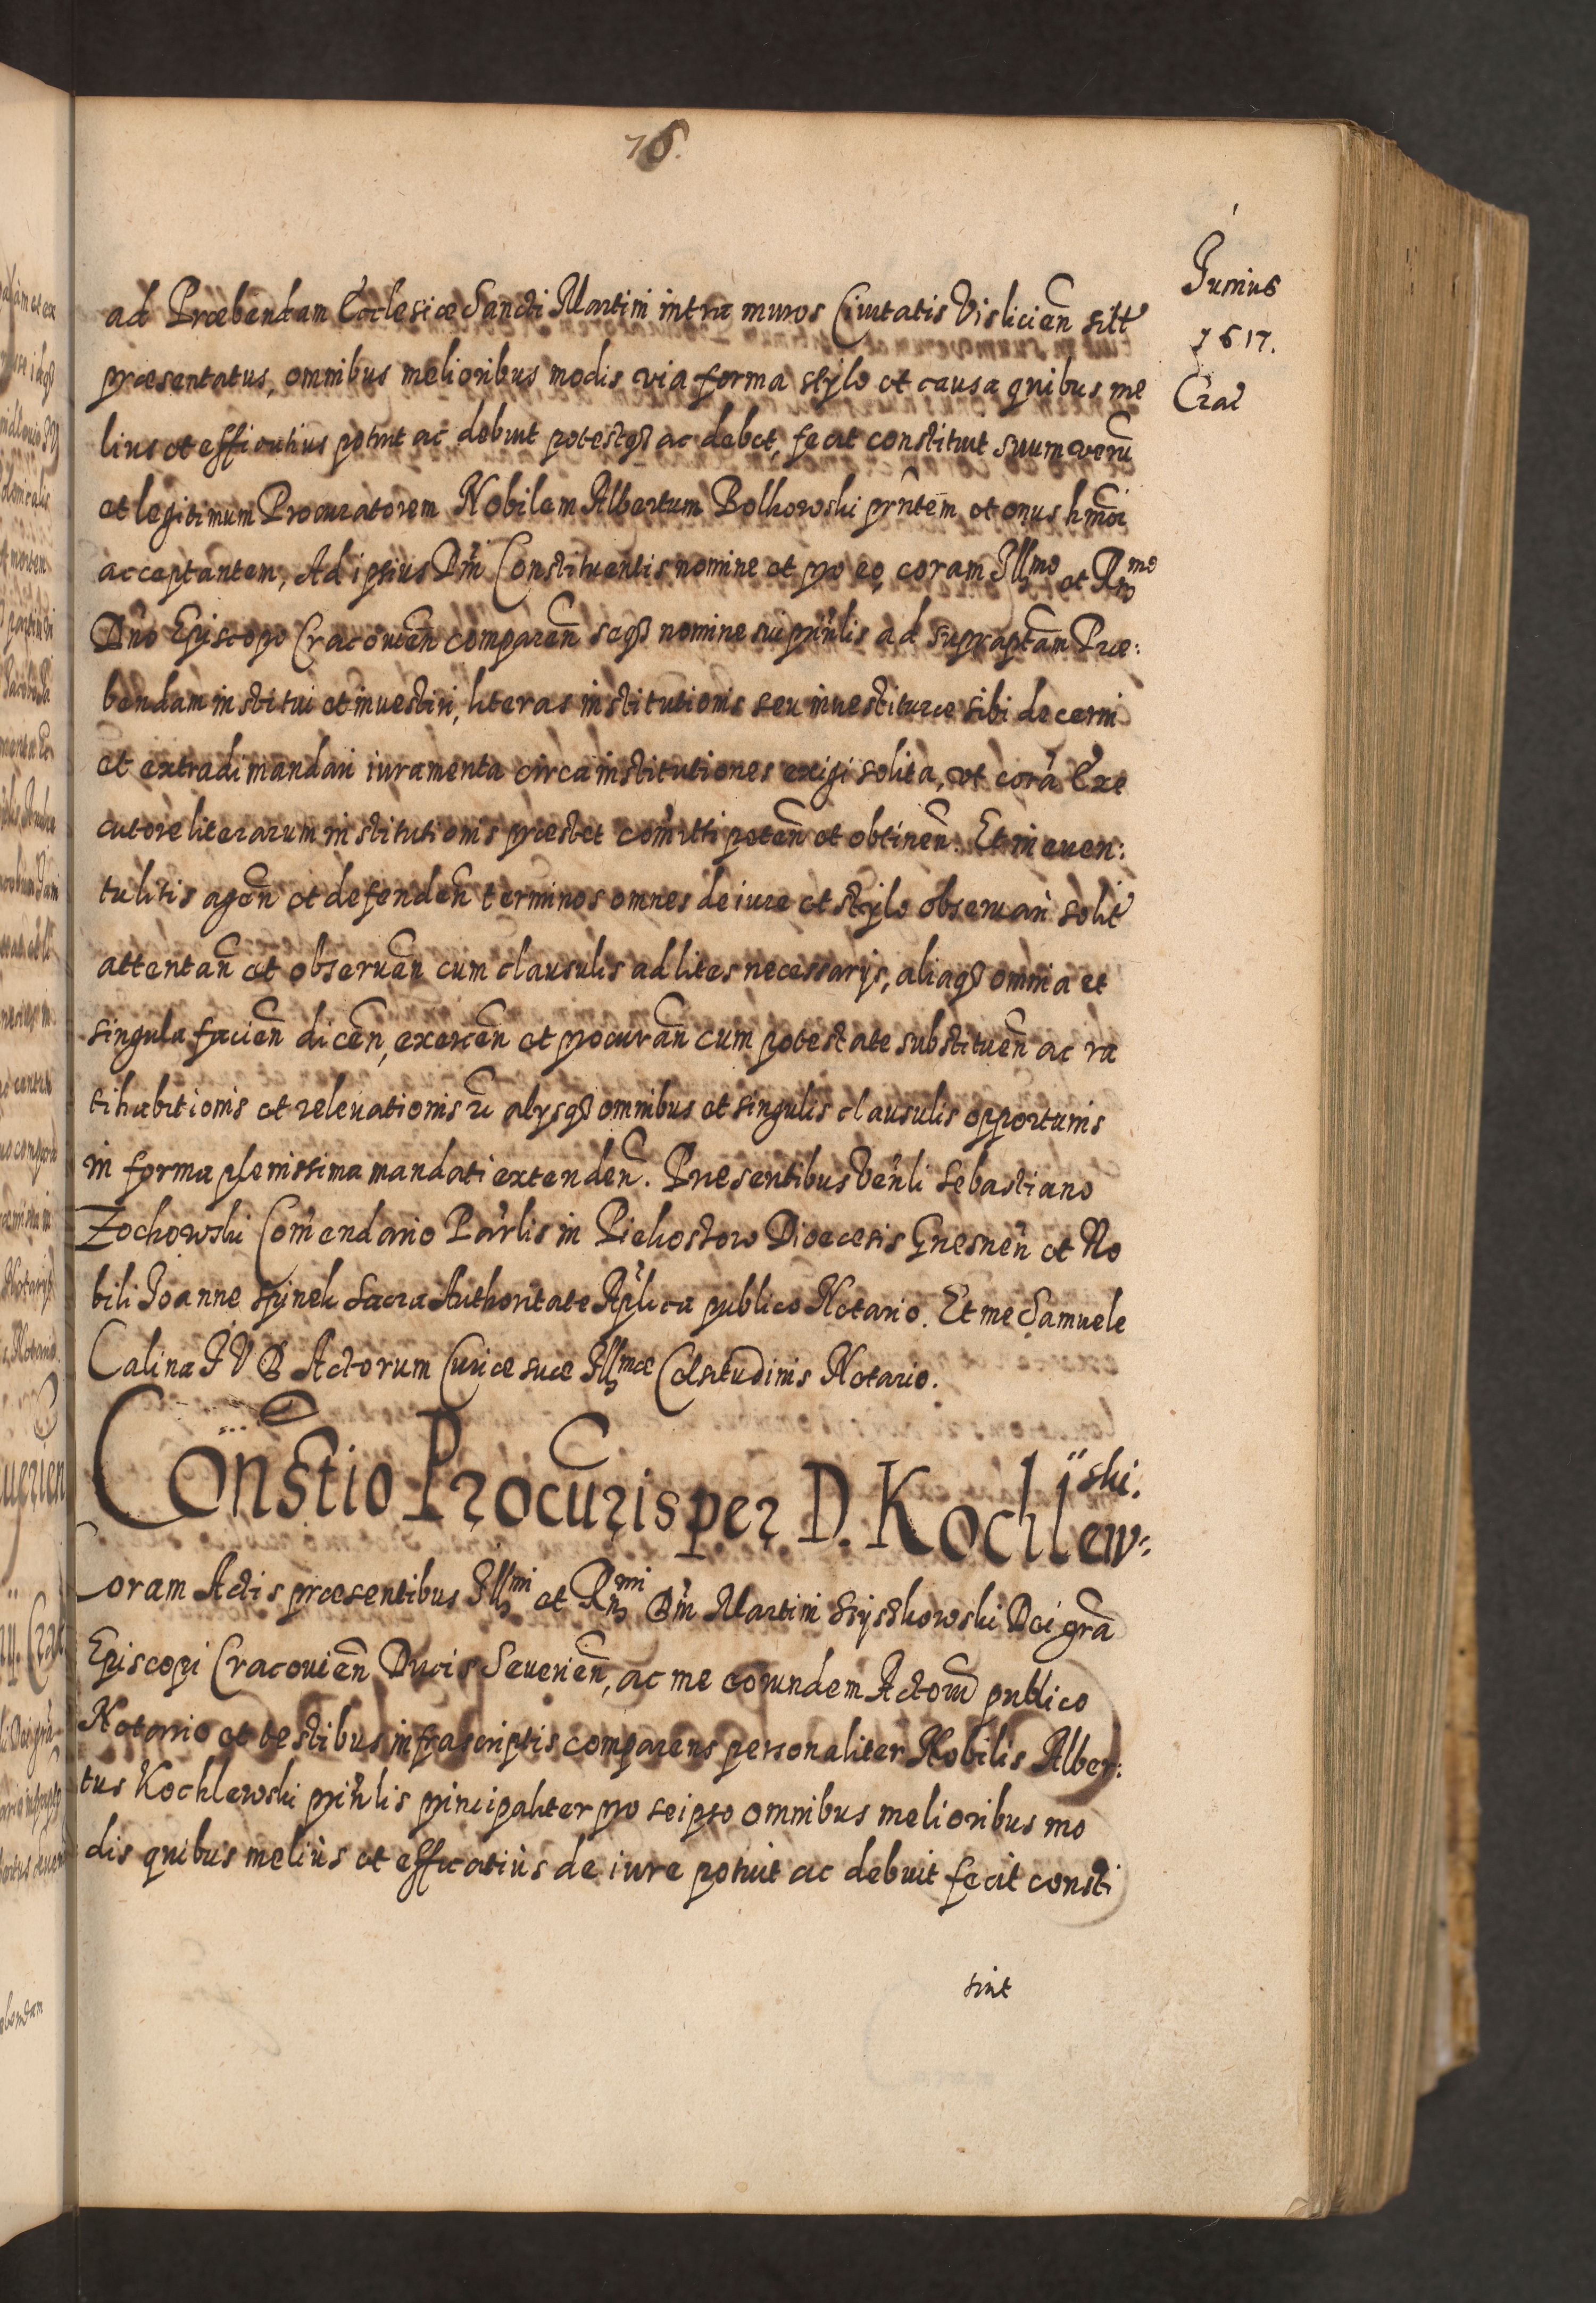 76.
Junius
1617.
Crac
ad Præbendam Ecclesiæ Sancti Martini intra muros Ciuitatis Visliciẽn sitt
præsentatus, omnibus melioribus modis via forma stylo et causa quibus me
lius et efficatius potuit ac debuit potestq3 ac debet, fecit constituit suum verũ
et legitimum Procuratorem Nobilem Albertum Bolhowski prñtem et onus hmõi
acceptantem, Ad ipsius Dñi Constituentis nomine et pro eo, coram Illmo et Rmo
Dño Episcopo Cracouiẽn comparẽn seq3 nomine sui prinlis ad supraptam Præ:
bendam institui et inuestiri, literas institutionis seu inuestituræ sibi decerni
et extradi mandari iuramenta circa institutiones exigi solita, vt corã Exe
cutore literarum institutionis præstet comitti petẽn et obtinẽn. Et in euen:
tu litis agẽn et defendẽn terminos omnes de iure et stylo obseruari solit
attentañ et obseruẽn cum clausulis ad lites necessarijs, aliaq3 omnia et
singula faciẽn dicẽn, exercẽn et procurañ cum potestate substituẽn ac ra
tihabitionis et releuationis alysq3 omnibus et singulis clausulis opportunis
in forma plenissima mandati extendẽn. Præsentibus Venli Sebastiano
Zochowski Comendario Parlis in Piekostow Diœcesis Gnesneñ et No
bili Joanne Spinek Sacra Authoritate Aplica publico Notario. Et me Samuele
Calina J V D Actorum Curiæ suæ Illmæ Celsitudinis Notario.
Constio Procuris per D. Kochlew:
ski.
Coram Actis præsentibus Illmi et Rmi Dñi Martini Szyszkowski Dei grã
Episcopi Cracouiẽn Ducis Seueriẽn, ac me eorundem Actorũ publico
Notario et testibus infrascriptis comparens personaliter Nobilis Alber:
tus Kochlewski prinlis principaliter pro seipso omnibus melioribus mo
dis quibus meliùs et efficatiùs de iure potuit ac debuit fecit consti
tuit